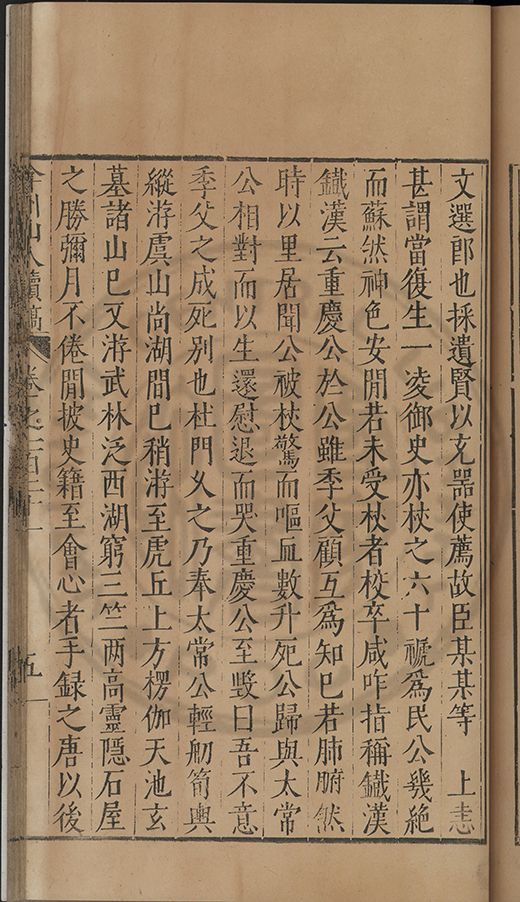 文選郎也採遺賢以充器使薦故臣某某等　上恚
甚謂當復生一凌御史亦杖之六十褫爲民公幾絶
而蘇然神色安閒若未受杖者校卒咸咋指稱鐵漢
鐵漢云重慶公於公雖季父顧互爲知巳若肺腑然
時以里居聞公被杖驚而嘔血數升死公歸與太常
公相對而以生還慰退而哭重慶公至毀曰吾不意
季父之成死别也杜門久之乃奉太常公輕舠筍輿
縱游虞山尚湖間巳稍游至虎丘上方楞伽天池玄
墓諸山巳又游武林泛西湖窮三竺两高靈隱石屋
之勝彌月不倦閒披史籍至會心者手録之唐以後
弇州山人續稿 卷之一百二十一 五